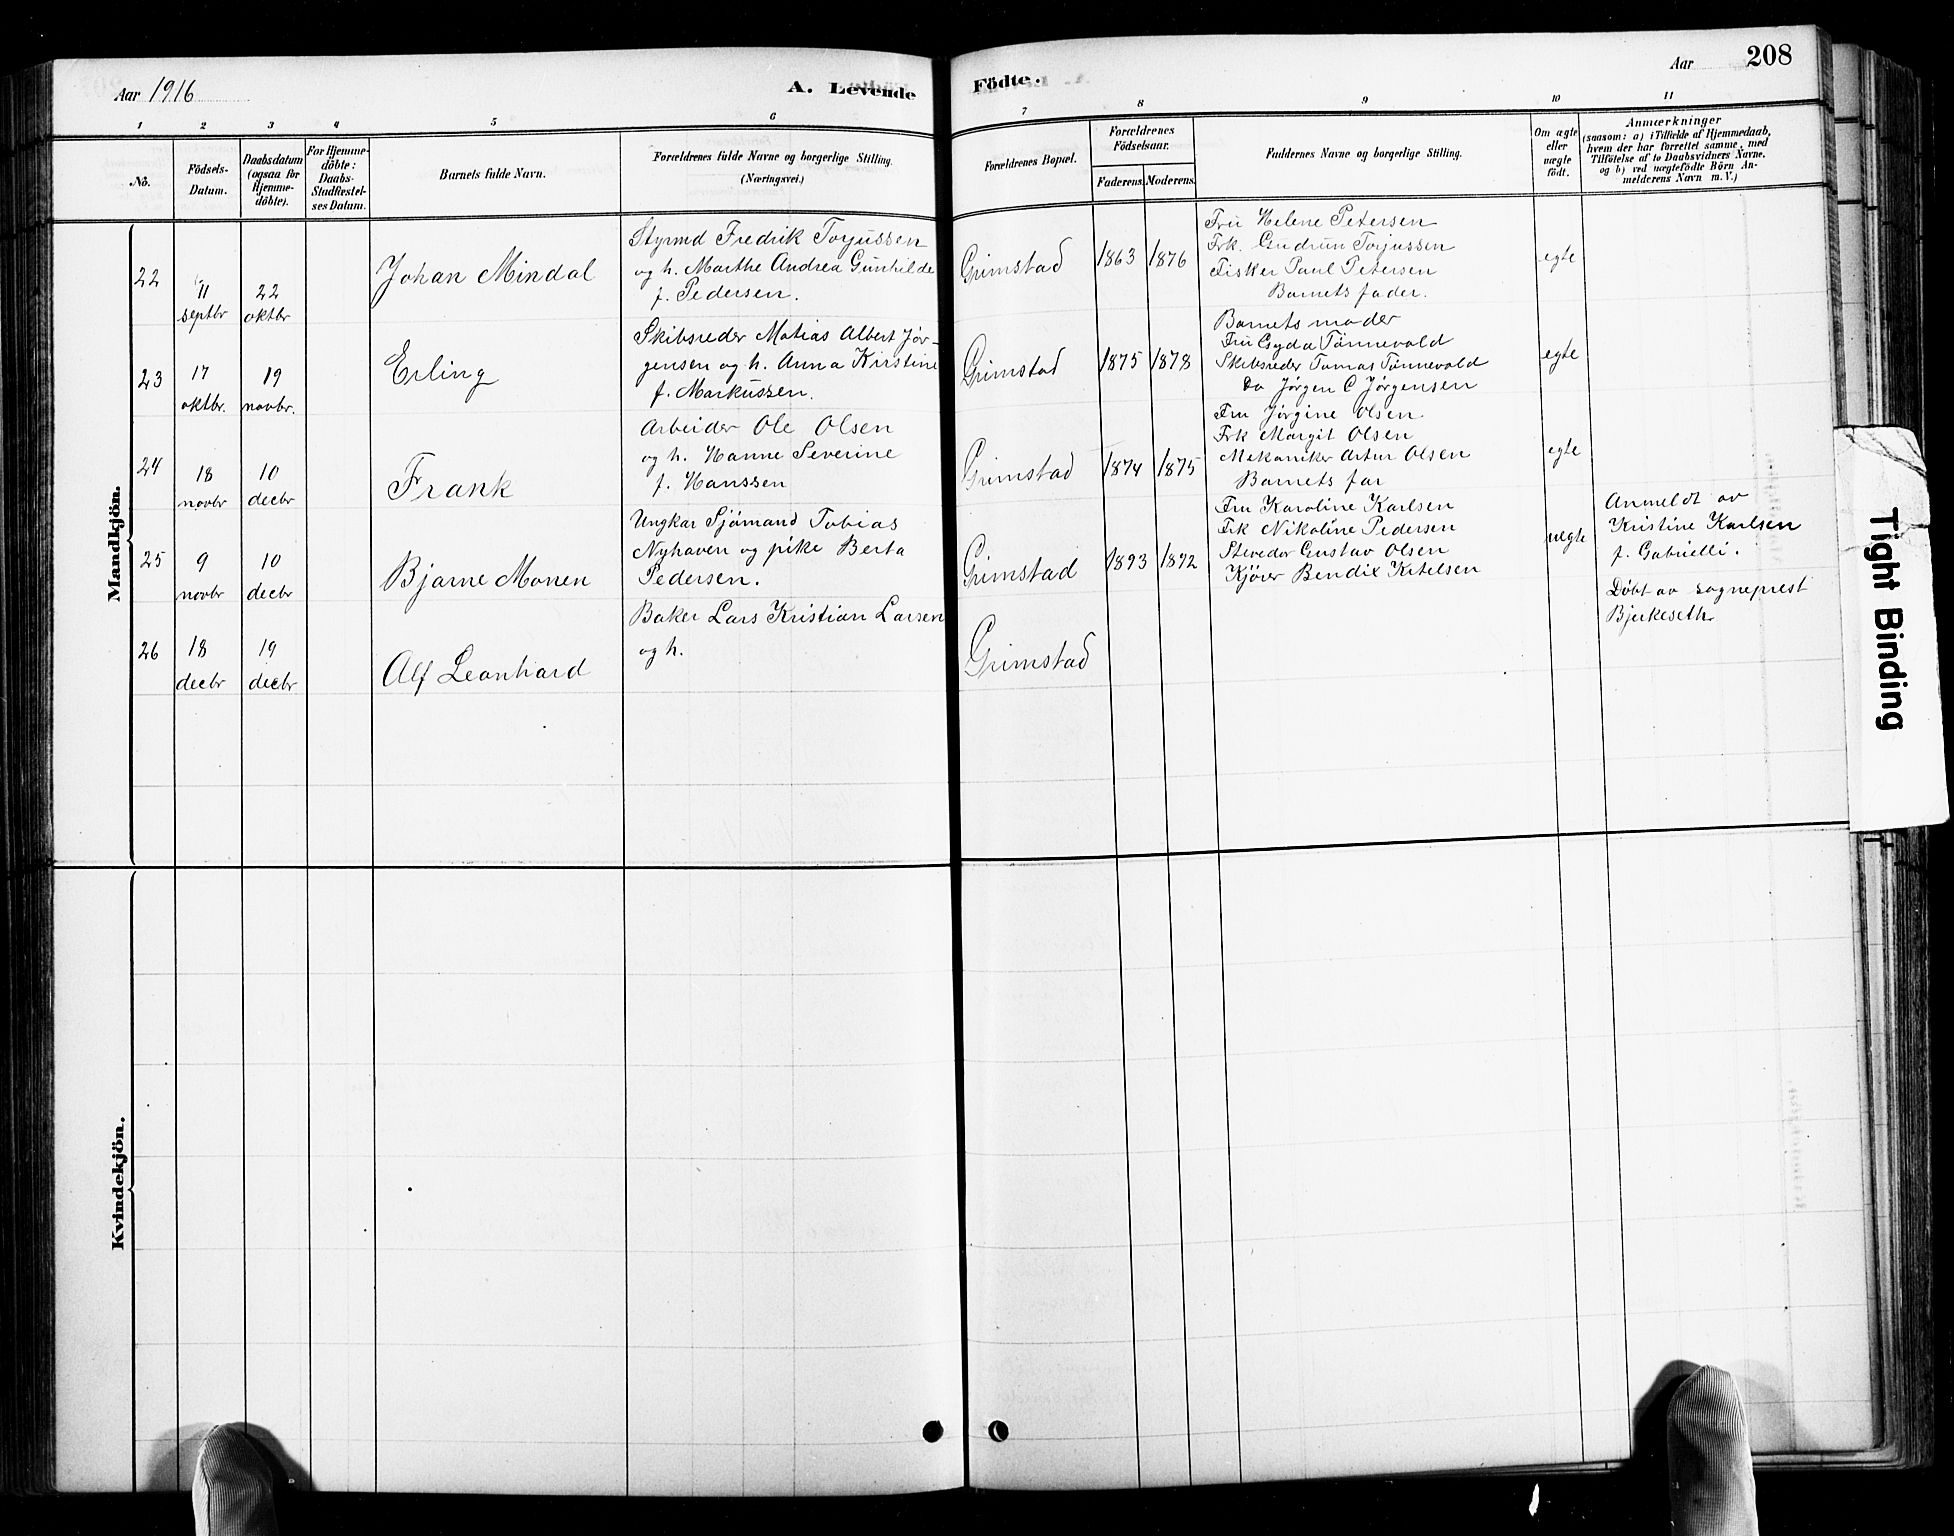 Aar 1916
A. Levende
Födte.
Aar
208
1 2 3 4 5 6 7 8 9 10 11
No.
Födsels-
Datum.
Daabsdatum
(ogsaa for
Hjemme-
döbte).
For Hjemme-
döbte:
Daabs-
Stadfæstel-
ses Datum.
Barnets fulde Navn.
Forældrenes fulde Navne og borgerlige Stilling.
(Næringsvei.)
Forældrenes Bopæl.
Forældrenes
Födselsaar.
Faderens. Moderens.
Faddernes Navne og borgerlige Stilling.
Om ægte
eller
uægte
födt.
Anmærkninger
(saasom: a) i Tilfælde af Hjemmedaab,
hvem der har forrettet samme, med
Tilföielse af to Daabsvidners Navne,
og b) ved uægtefödte Börn An-
melderens Navn m. V.)
Mandkjön.
22
11
septbr
22
oktbr
Johan Mindal
Styrmd Fredrik Torjussen
og h. Marthe Andrea Gunhilde
f. Pedersen.
Grimstad
1863
1876
Fru Helene Petersen
Frk. Gudrun Torjussen
Fisker Paul Petersen
Barnets fader.
egte
23
17
oktbr.
19
novbr.
Erling
Skibsreder Matias Albert Jør-
gensen og h. Anna Kristine
f. Markussen.
Grimstad
1875
1878
Barnets moder
Fru Gyda Tønnevold
Skibsreder Tomas Tønnevold
Do Jørgen C Jørgensen
egte
24
18
novbr
10
decbr
Frank
Arbeider Ole Olsen
og h. Hanne Severine
f. Hanssen
Grimstad
1874
1875
Fru Jørgine Olsen.
Frk Margit Olsen
Mekaniker Artur Olsen
Barnets far
egte
25
9
novbr
10
decbr
Bjarne Monen
Ungkar Sjømand Tobias
Nyhaven og pike Berta
Pedersen.
Grimstad
1893
1892
Fru Karoline Karlsen
Frk Nikoline Pedersen
Stevedor Gustav Olsen
Kjører Bendix Ketelsen
uegte
Anmeldt av
Kristine Karlsen
f. Gabrielli.
26
18
decbr
19
decbr
Alf Leonhard
Baker Lars Kristian Larsen
og h.
Grimstad
Døbt av sogneprest
Bjerkeseth
Kvindekjön.
Tight Binding